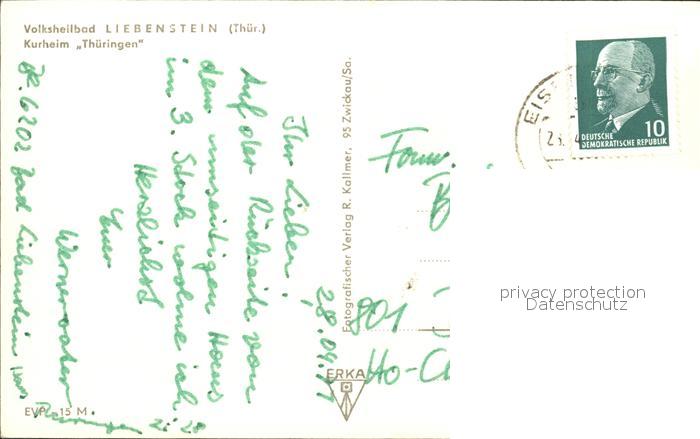 Volksheilbad LIEBENSTEIN (Thür.)
Kurheim „Thüringen"
Ihr Lieben!
Auf der Rückseite von
dem umseitigen Haus
im 3. Stock wohne ich.
Herzlichst
Euer
Wernervater
6202 Bad Liebenstein
28.04.
Fotografischer Verlag R. Kallmer, 95 Zwickau/Sa.
ERKA
EVP -15 M
Fam.
801
EIS
DEUTSCHE
DEMOKRATISCHE REPUBLIK
10
privacy protection
Datenschutz